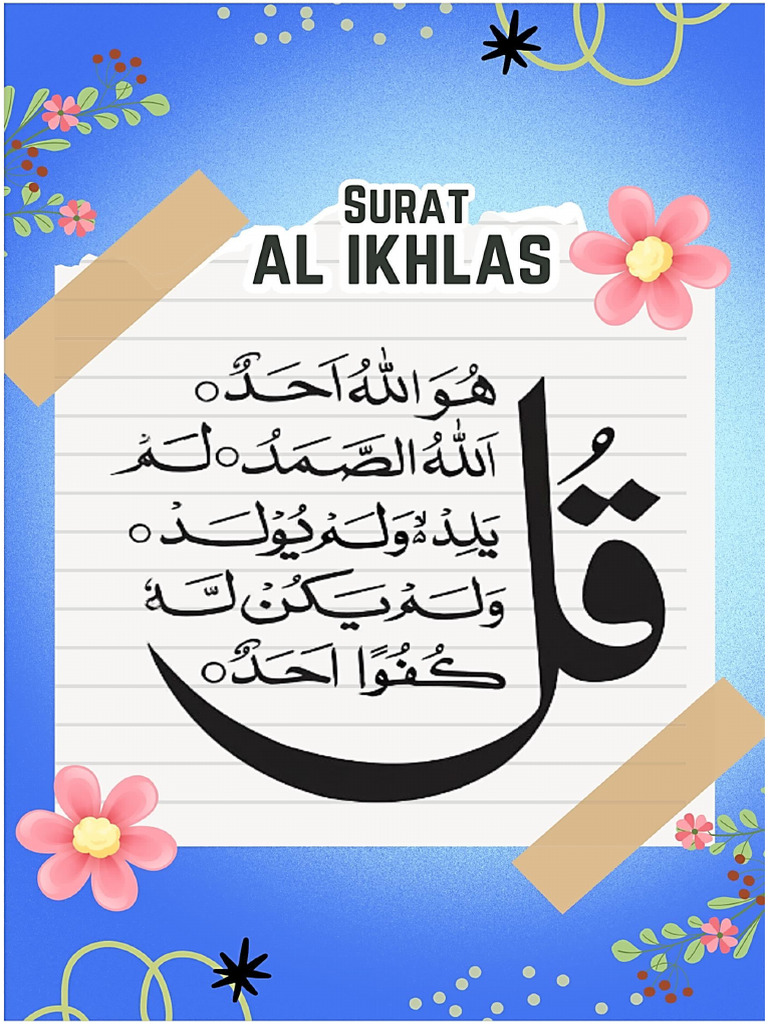 SURAT
AL IKHLAS
قُلْ
هُوَ اللّٰهُ اَحَدٌ ○
اَللّٰهُ الصَّمَدُ ○ لَمْ
يَلِدْ ۙ وَلَمْ يُوْلَدْ ○
وَلَمْ يَكُنْ لَّهٗ
كُفُوًا اَحَدٌ ○